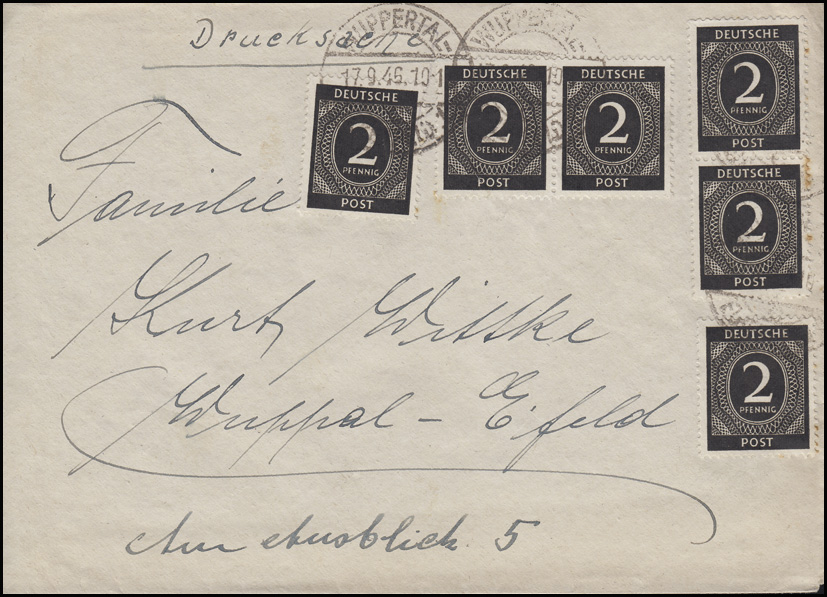 Drucksache
WUPPERTAL-
WUPPERTAL-
17.9.46.19-1
DEUTSCHE
2
PFENNIG
POST
DEUTSCHE
2
PFENNIG
POST
DEUTSCHE
2
PFENNIG
POST
DEUTSCHE
2
PFENNIG
POST
DEUTSCHE
2
PFENNIG
POST
DEUTSCHE
2
PFENNIG
POST
Familie
Kurt Wittke
Wuppal - E'feld
Am Ausblick 5